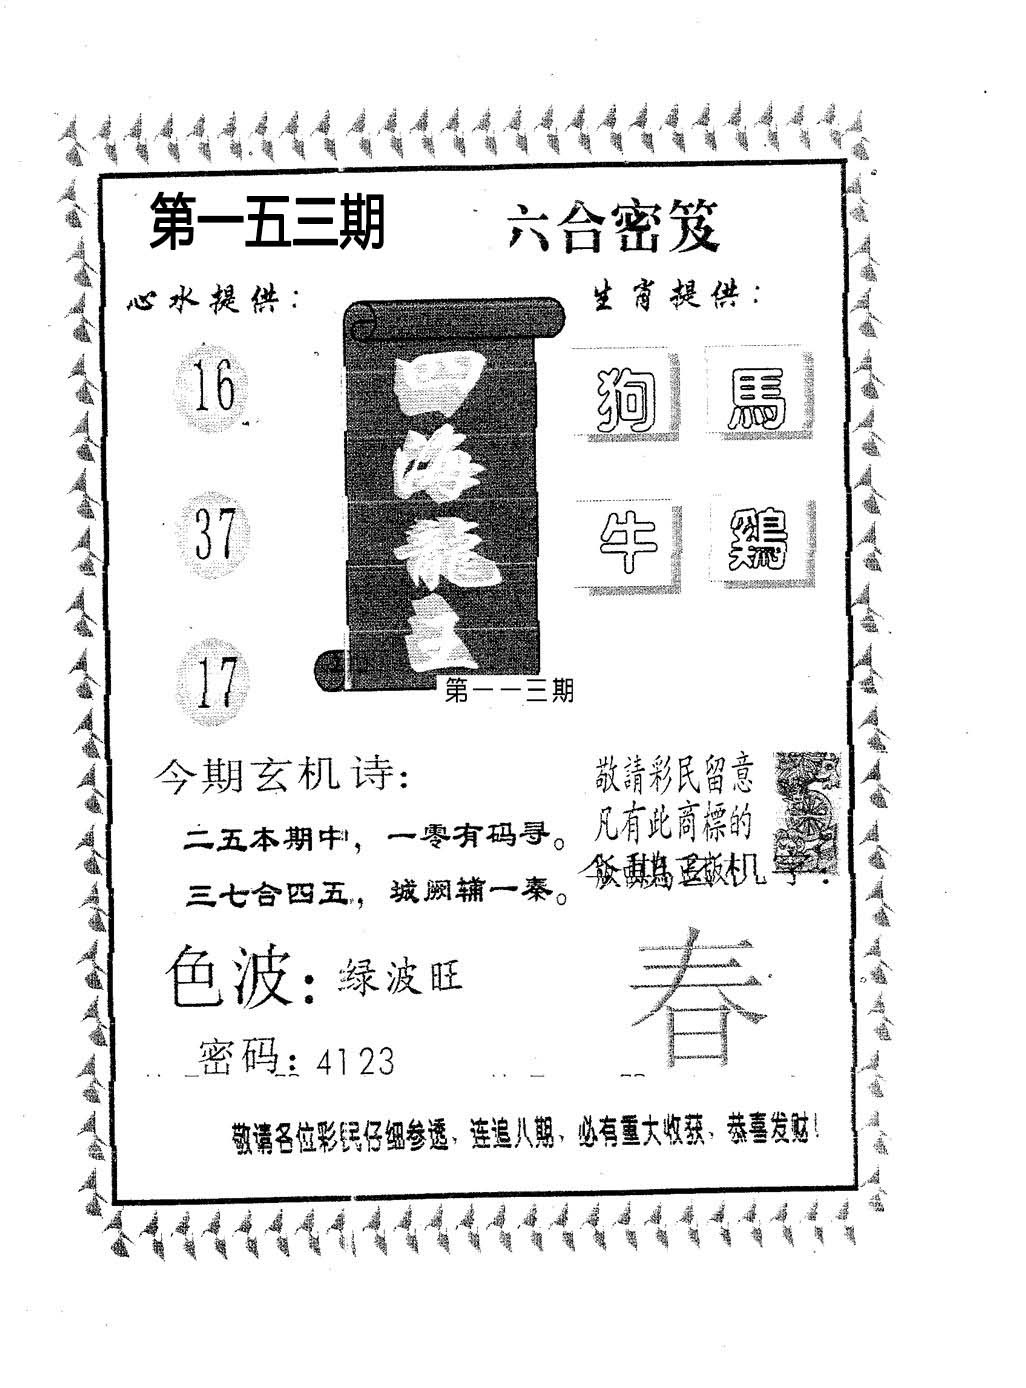 第一五三期
六合密笈
心水提供：
生肖提供：
16
37
17
四海龍王
狗
馬
牛
鷄
第一一三期
今期玄机诗：
二五本期中，一零有码寻。
三七合四五，城阙辅一秦。
敬請彩民留意
凡有此商標的
色波：绿波旺
春
密码：4123
敬请各位彩民仔细参透、连追八期、必有重大收获、恭喜发财！